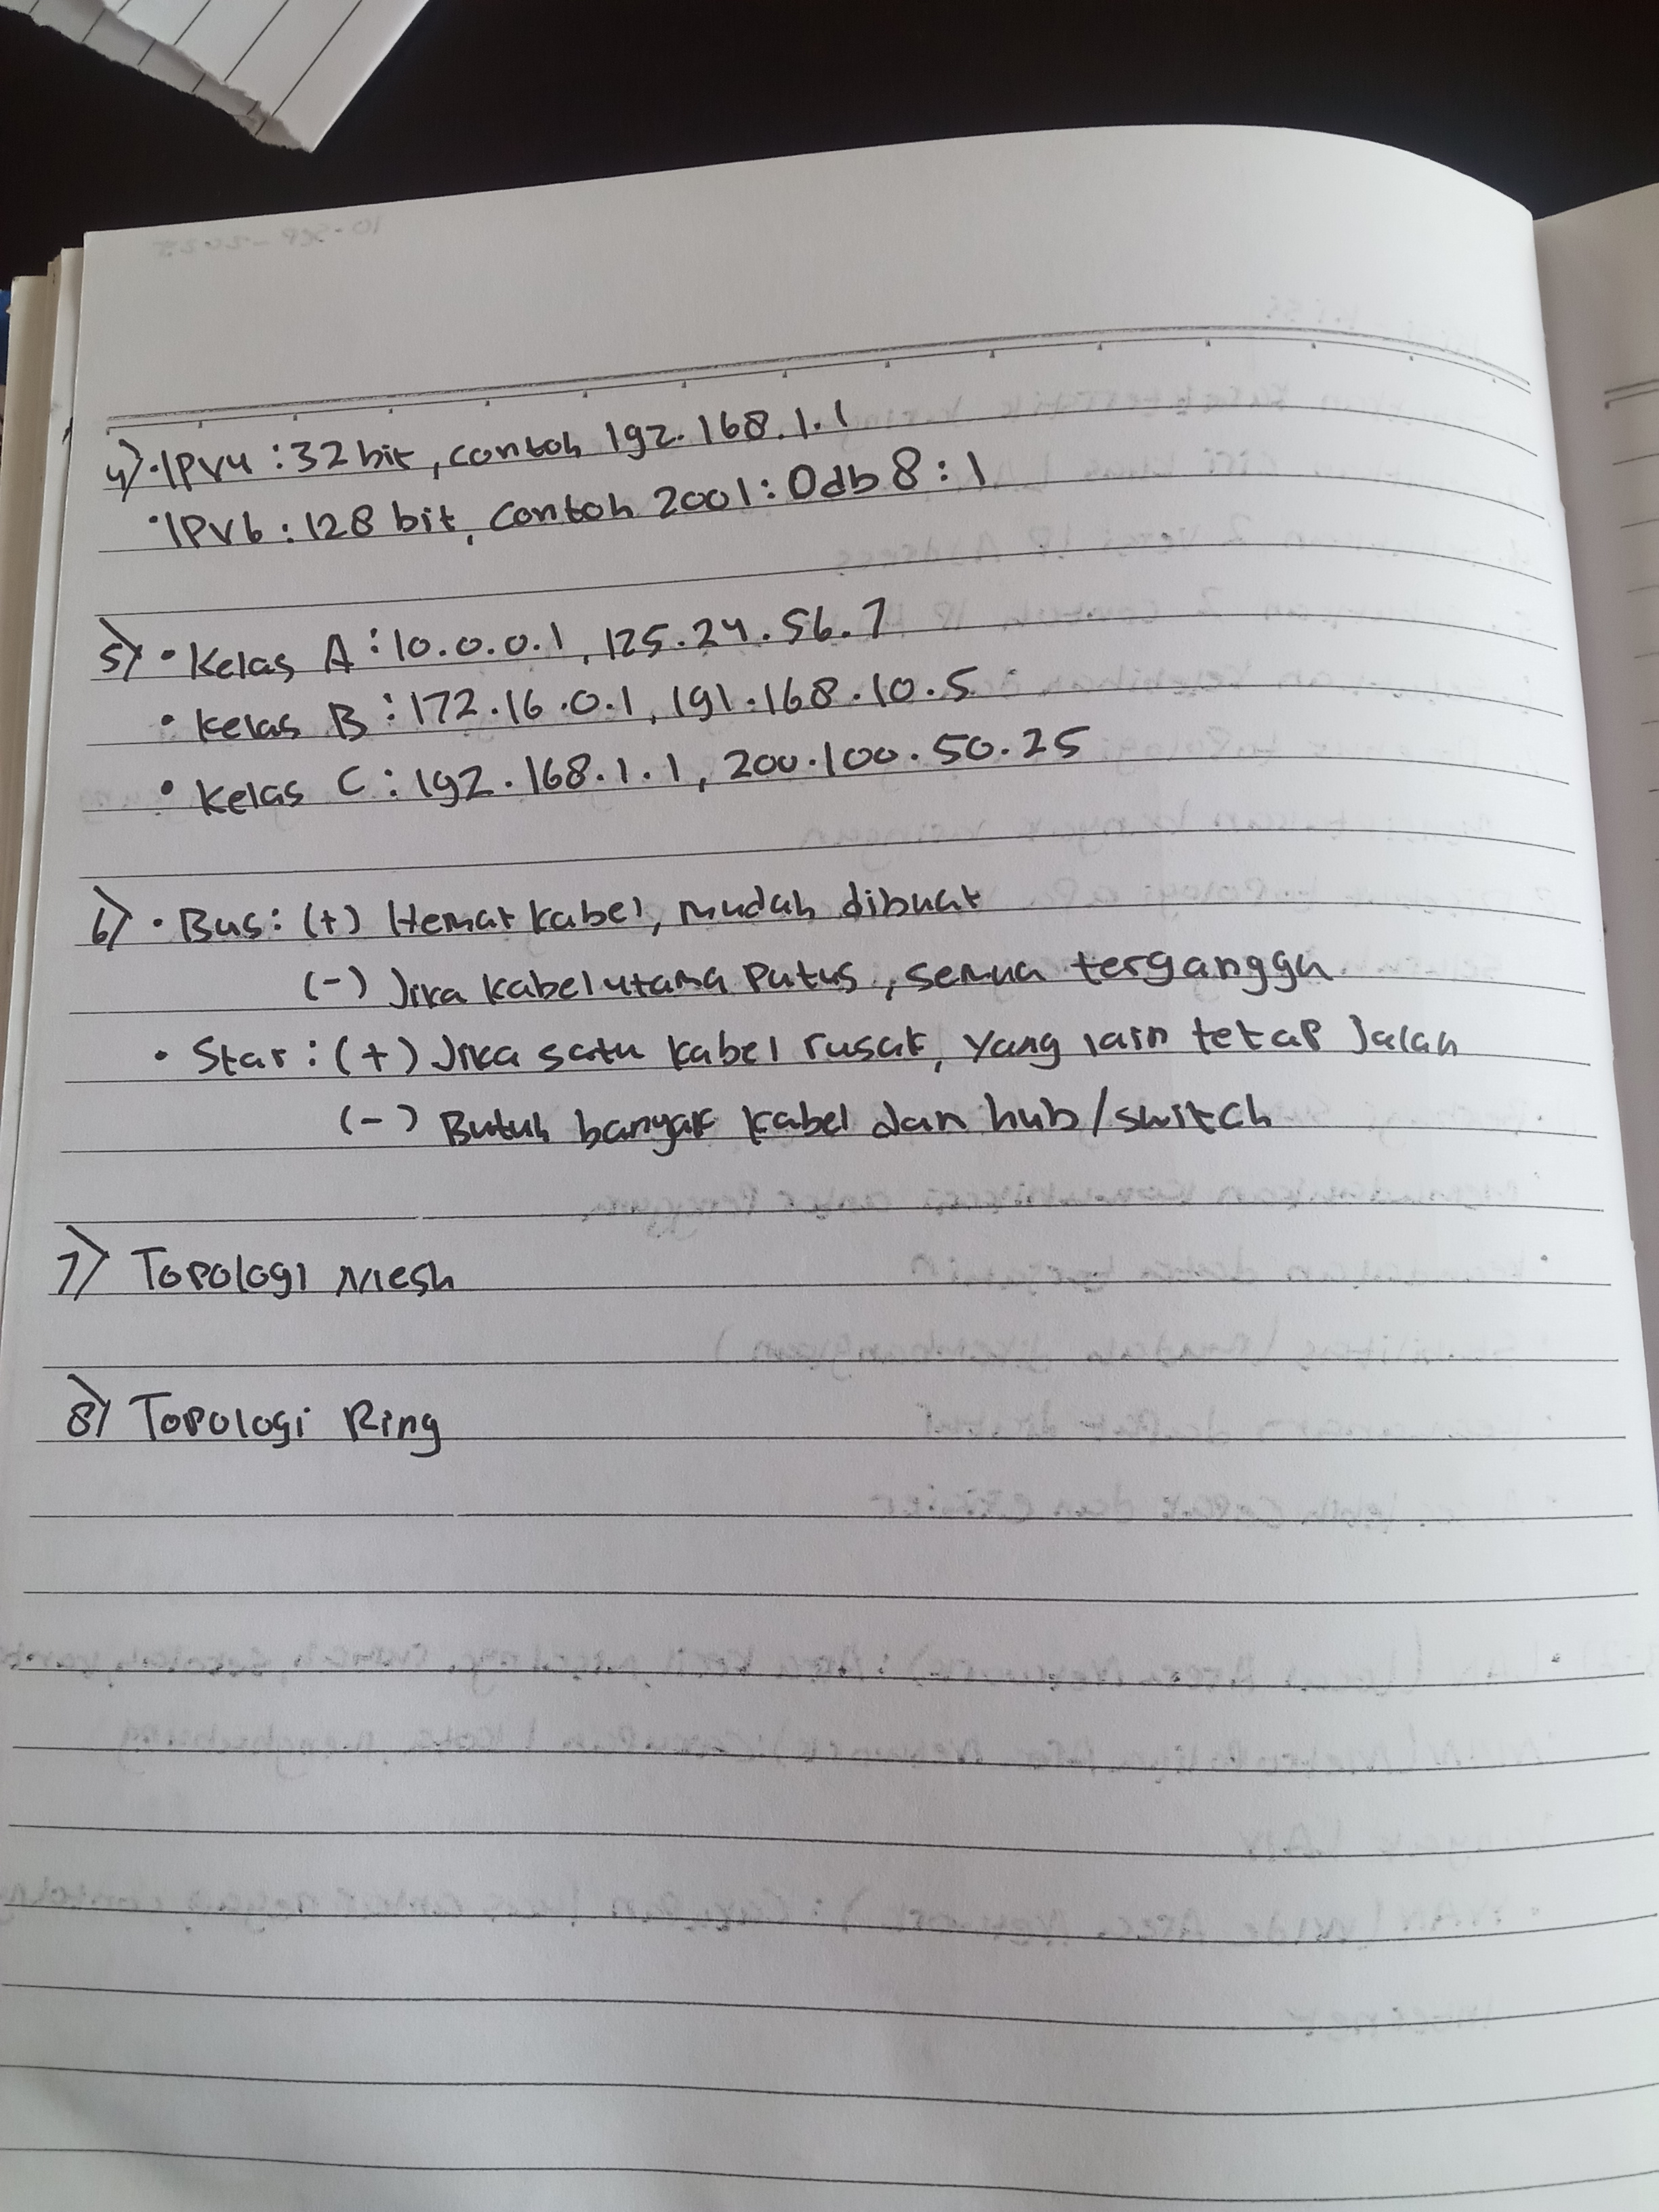 4) • IPv4 : 32 bit, contoh 192.168.1.1
• IPv6 : 128 bit, contoh 2001:0db8:1
5) • Kelas A : 10.0.0.1, 125.24.56.7
• Kelas B : 172.16.0.1, 191.168.10.5
• Kelas C : 192.168.1.1, 200.100.50.25
6) • Bus : (+) Hemat kabel, mudah dibuat
(-) Jika kabel utama putus, semua terganggu
• Star : (+) Jika satu kabel rusak, yang lain tetap jalan
(-) Butuh banyak kabel dan hub/switch
7) Topologi Mesh
8) Topologi Ring